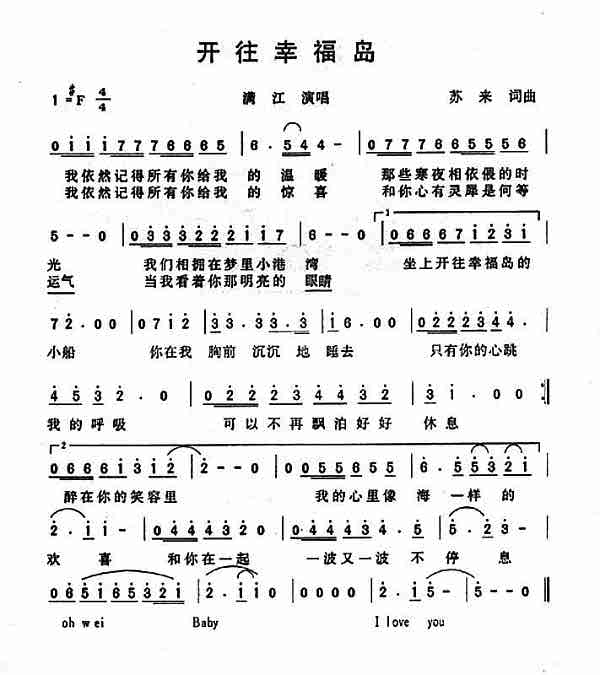 开往幸福岛
1=#F 4/4 满江 演唱 苏来 词曲
0 i i i 7 7 7 6 6 6 5 | 6. 5 4 4 - | 0 7 7 7 6 6 5 5 5 6
我依然记得所有你给我 的 温 暖 那些寒夜相依偎的时
我依然记得所有你给我 的 惊 喜 和你心有灵犀是何等
5 - - 0 | 0 3 3 3 2 2 2 1 7 | 6 - - 0 | 0 6 6 6 7 i 2 3 i
光 我们相拥在梦里小港 湾 坐上开往幸福岛的
运气 当我看着你那明亮的 眼睛
7 2. 0 0 | 0 7 i 2 | 3. 3 3. 3 | i 6. 0 0 | 0 2 2 2 3 4 4.
小船 你在我 胸前 沉沉 地 睡去 只有你的心跳
4 5 3 2. 0 | 0 2 2 2 3 4 4 3 2 | 3 i. 0 0 :||
我 的 呼吸 可以不再飘泊好好 休息
0 6 6 6 6 i 3 i 2 | 2 - - 0 | 0 0 5 5 6 5 | 6. 5 5 3 2 i
醉在你的笑容里 我的心里像 海 一样 的
2. i i - | 0 4 4 4 3 2 0 | 0. 4 4 4 3 4. 5 | 5. 2 3 -
欢 喜 和你在一起 一波又一波 不 停 息
0 6 5 i 6 5 3 2 i | 2. i i 0 | 0 0 0 0 | 2. i 5 - | 5 - - 0 ||
oh wei Baby I love you